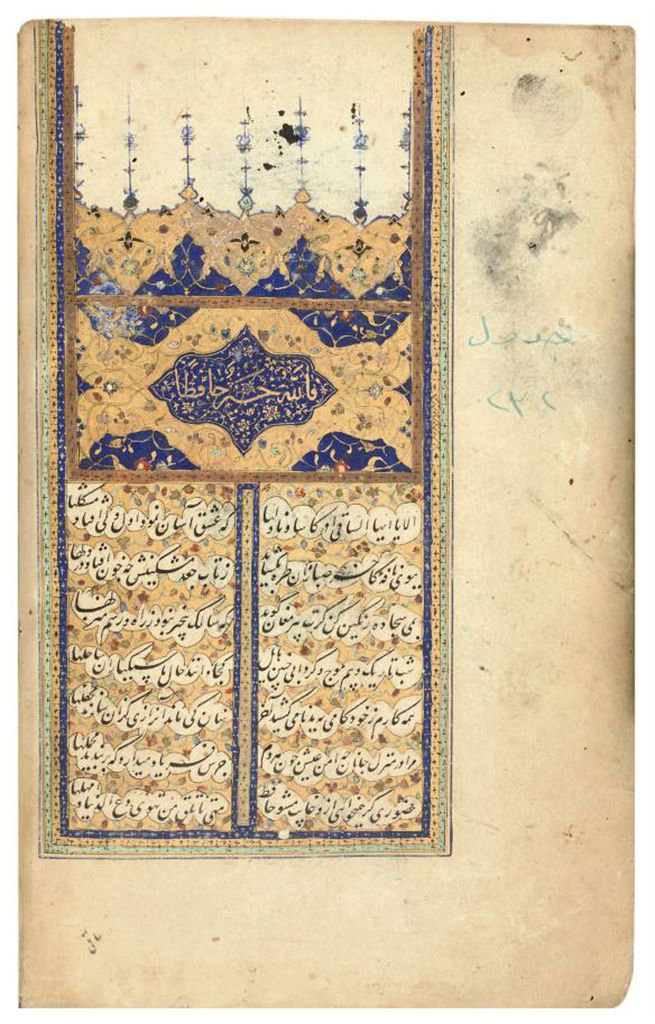 فالله خیر حافظا
جدول
الا یا ایها الساقی ادر کاسا و ناولها که عشق آسان نمود اول ولی افتاد مشکلها
ببوی نافه کاخر صبا زان طره بگشاید ز تاب جعد مشکینش چه خون افتاد در دلها
بمی سجاده رنگین کن گرت پیر مغان گوید که سالک بیخبر نبود ز راه و رسم منزلها
شب تاریک و بیم موج و گردابی چنین هایل کجا دانند حال ما سبکباران ساحلها
همه کارم ز خود کامی به بدنامی کشید آخر نهان کی ماند آن رازی کزان سازند محفلها
مرا در منزل جانان چه امن عیش چون هر دم جرس فریاد میدارد که بربندید محملها
حضوری گر همی خواهی ازو غایب مشو حافظ متی ما تلق من تهوی دع الدنیا و اهملها